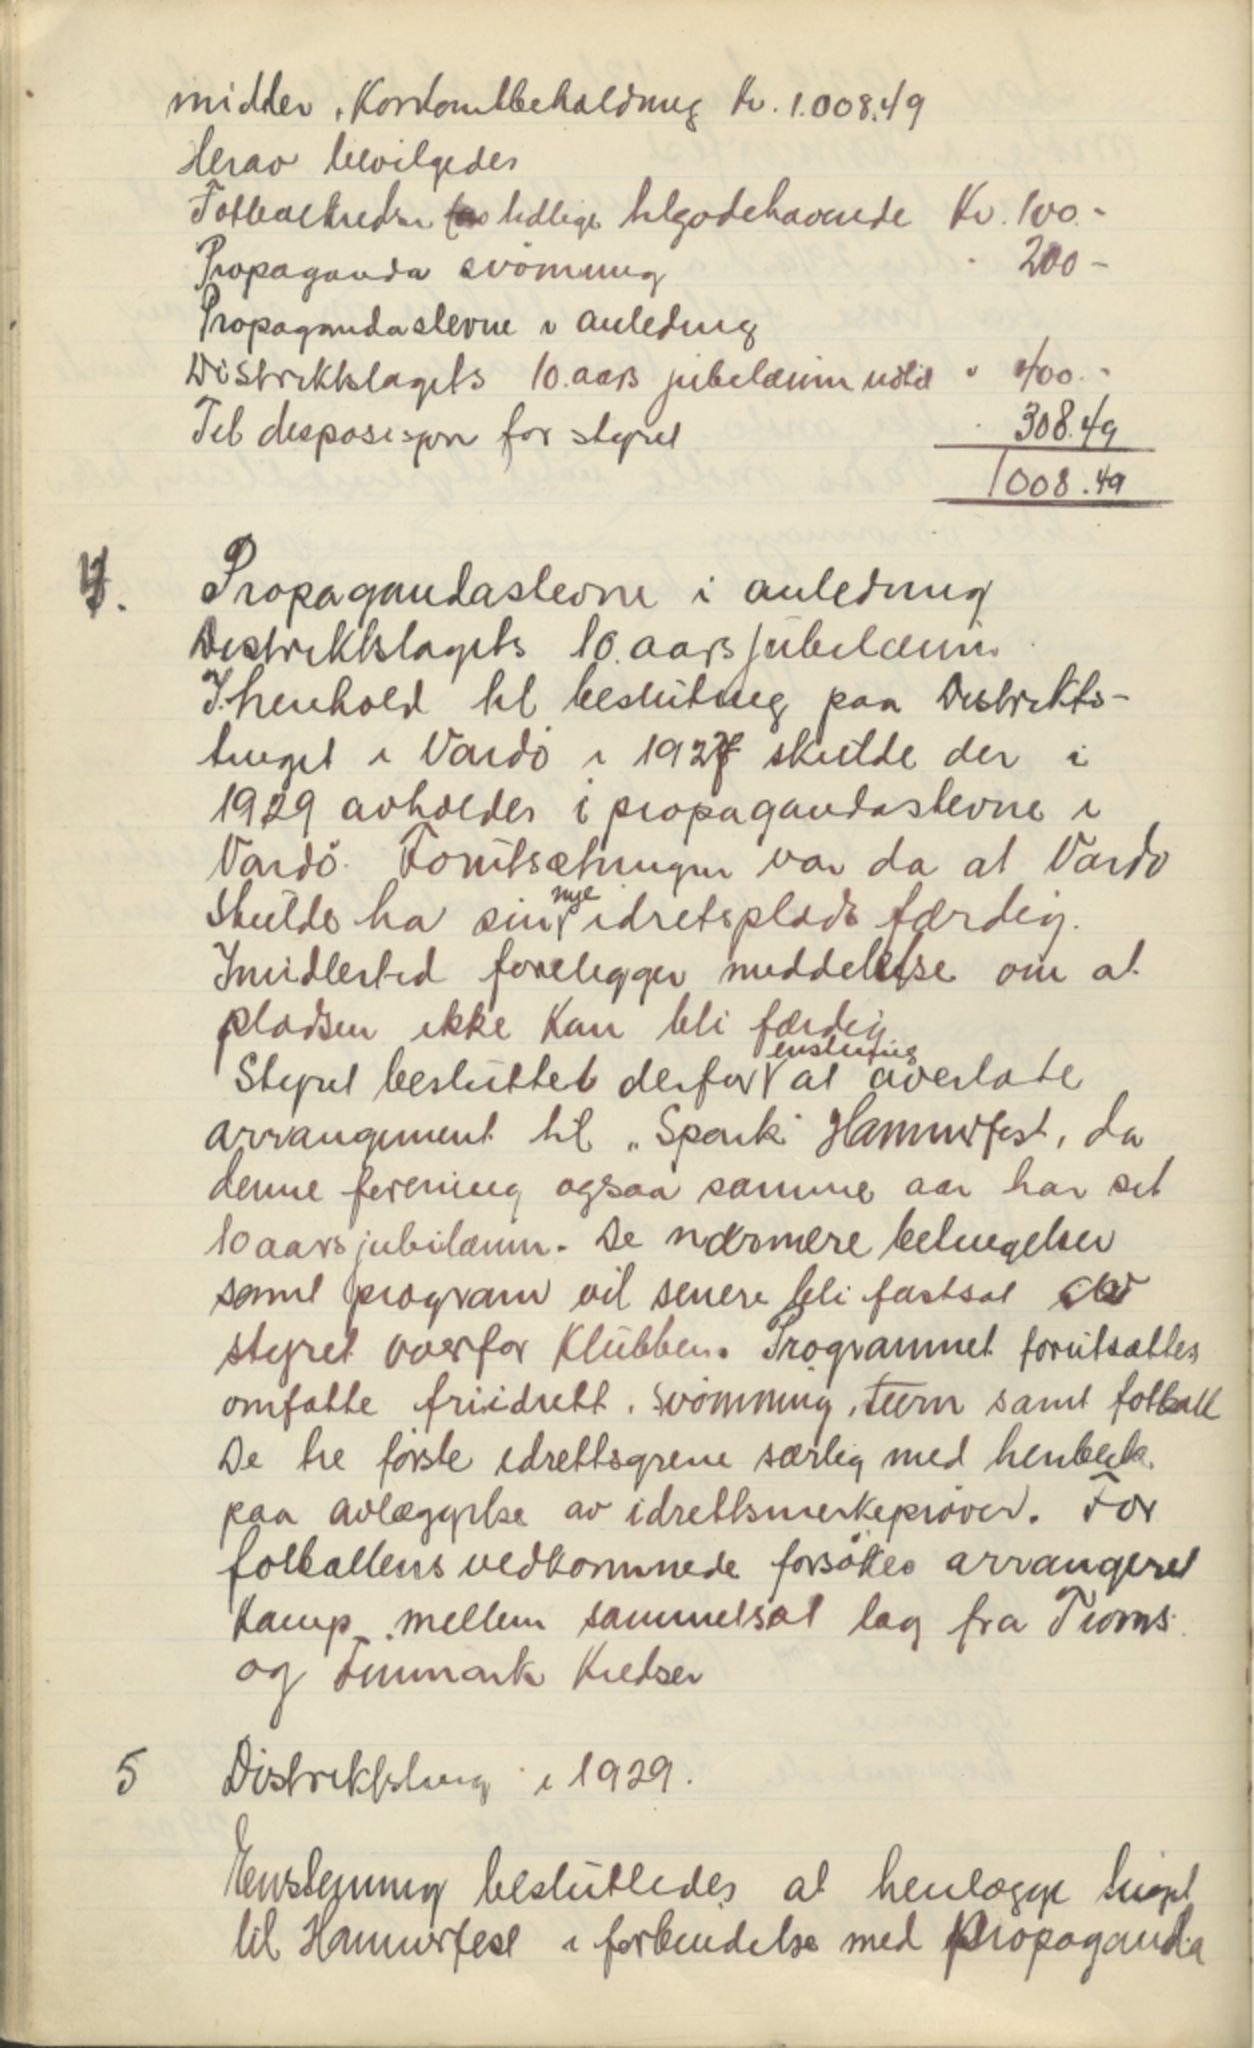 midler. Kontantbeholdning Kr. 1.008.49
Herav bevilgedes
Fotballkredsen tidlige tilgodehavende Kr. 100.-
Propaganda svömning " 200 -
Propagandastevne i anledning
Distriktslagets 10. aars jubelæum " 400.-
Til disposisjon for styret " 308.49
1008.49
4. Propagandastevne i anledning
Distriktslagets 10. aars jubelæum.
I henhold til beslutning paa Distrikts-
tinget i Vardö i 1927 skulde der i
1929 avholdes i propagandastevne i
Vardö. Foruts​ætningen var da at Vardö
skulde ha sin nye idretsplads færdig.
Imidlertid forelegger meddelelse om at
pladsen ikke kan bli færdig
Styret besluttet derfor enstemig at overlate
arrangement til "Spark" Hammerfest, da
denne forening ogsaa samme aar har set
10 aars jubilæum. De nærmere betingelser
samt program vil senere bli fastsat av
styret overfor Klubben. Programmet forutsættes
omfatte friidrett, svömning, turn samt fotball
De tre förste idrettsgrene særlig med henblik
paa avlæggelse av idrettsmerkepröver. For
fotballens vedkommede forsökes arrangeret
kamp mellem sammensat lag fra Troms
og Finmark Kredser
5 Distriktsting i 1929.
Enstemmig besluttedes at henlægge tinget
til Hammerfest i forbindelse med Propaganda